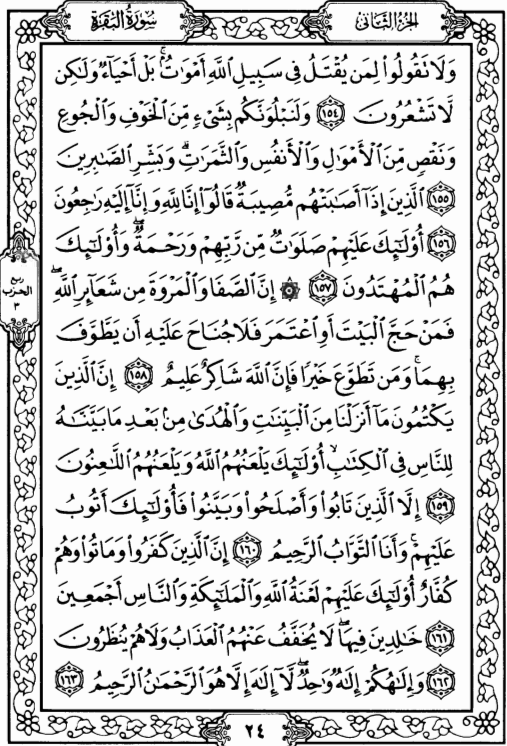 سُورَةُ البَقَرَةِ
الجُزْءُ الثَّانِى
وَلَا تَقُولُوا۟ لِمَن يُقْتَلُ فِى سَبِيلِ ٱللَّهِ أَمْوَٰتٌۢ ۚ بَلْ أَحْيَآءٌ وَلَـٰكِن
لَّا تَشْعُرُونَ ١٥٤ وَلَنَبْلُوَنَّكُم بِشَىْءٍ مِّنَ ٱلْخَوْفِ وَٱلْجُوعِ
وَنَقْصٍ مِّنَ ٱلْأَمْوَٰلِ وَٱلْأَنفُسِ وَٱلثَّمَرَٰتِ ۗ وَبَشِّرِ ٱلصَّـٰبِرِينَ
١٥٥ ٱلَّذِينَ إِذَآ أَصَـٰبَتْهُم مُّصِيبَةٌ قَالُوٓا۟ إِنَّا لِلَّهِ وَإِنَّآ إِلَيْهِ رَٰجِعُونَ
١٥٦ أُو۟لَـٰٓئِكَ عَلَيْهِمْ صَلَوَٰتٌ مِّن رَّبِّهِمْ وَرَحْمَةٌ ۖ وَأُو۟لَـٰٓئِكَ
هُمُ ٱلْمُهْتَدُونَ ١٥٧ ۞ إِنَّ ٱلصَّفَا وَٱلْمَرْوَةَ مِن شَعَآئِرِ ٱللَّهِ ۖ
فَمَنْ حَجَّ ٱلْبَيْتَ أَوِ ٱعْتَمَرَ فَلَا جُنَاحَ عَلَيْهِ أَن يَطَّوَّفَ
بِهِمَا ۚ وَمَن تَطَوَّعَ خَيْرًا فَإِنَّ ٱللَّهَ شَاكِرٌ عَلِيمٌ ١٥٨ إِنَّ ٱلَّذِينَ
يَكْتُمُونَ مَآ أَنزَلْنَا مِنَ ٱلْبَيِّنَـٰتِ وَٱلْهُدَىٰ مِنۢ بَعْدِ مَا بَيَّنَّـٰهُ
لِلنَّاسِ فِى ٱلْكِتَـٰبِ ۙ أُو۟لَـٰٓئِكَ يَلْعَنُهُمُ ٱللَّهُ وَيَلْعَنُهُمُ ٱللَّـٰعِنُونَ
١٥٩ إِلَّا ٱلَّذِينَ تَابُوا۟ وَأَصْلَحُوا۟ وَبَيَّنُوا۟ فَأُو۟لَـٰٓئِكَ أَتُوبُ
عَلَيْهِمْ ۚ وَأَنَا ٱلتَّوَّابُ ٱلرَّحِيمُ ١٦٠ إِنَّ ٱلَّذِينَ كَفَرُوا۟ وَمَاتُوا۟ وَهُمْ
كُفَّارٌ أُو۟لَـٰٓئِكَ عَلَيْهِمْ لَعْنَةُ ٱللَّهِ وَٱلْمَلَـٰٓئِكَةِ وَٱلنَّاسِ أَجْمَعِينَ
١٦١ خَـٰلِدِينَ فِيهَا ۖ لَا يُخَفَّفُ عَنْهُمُ ٱلْعَذَابُ وَلَا هُمْ يُنظَرُونَ
١٦٢ وَإِلَـٰهُكُمْ إِلَـٰهٌ وَٰحِدٌ ۖ لَّآ إِلَـٰهَ إِلَّا هُوَ ٱلرَّحْمَـٰنُ ٱلرَّحِيمُ ١٦٣
ربع
الحزب
٣
٢٤